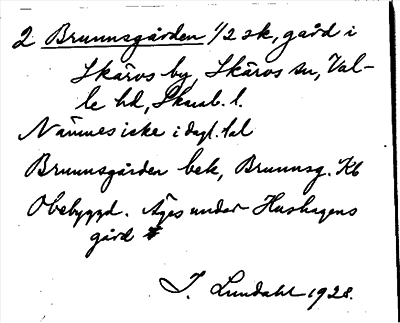 2 Brunnsgården 1/2 sk, gård i
Skärvs by, Skärvs sn, Val-
le hd, Skarab. l.
Nämnes icke i dagl. tal
Brunnsgården bek, Brunnsg. Kb
Obebyggd. Äges under Hushagens
gård
J. Lundahl 1928.